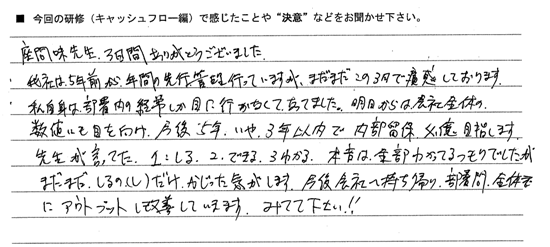 ■ 今回の研修（キャッシュフロー編）で感じたことや“決意”などをお聞かせ下さい。
座間味先生、3日間ありがとうございました。
我社は5年前から年間の先行管理行っていますが、まだまだこの3日で痛感しております。
私自身は部署内の経常しか目に行かなくて立てました。明日からは会社全体の
数値にも目を向け、今後5年、いや、3年以内で内部留保 億目指します。
先生が言ってた、1:しる、2.できる、3わかる、本音は全部わかてるつもりでしたが
まだまだ、しるの(し)だけ、かじった気がします。今後会社へ持ち帰り、部署間、全体
にアウトプットし改善していきます。みてて下さい!!